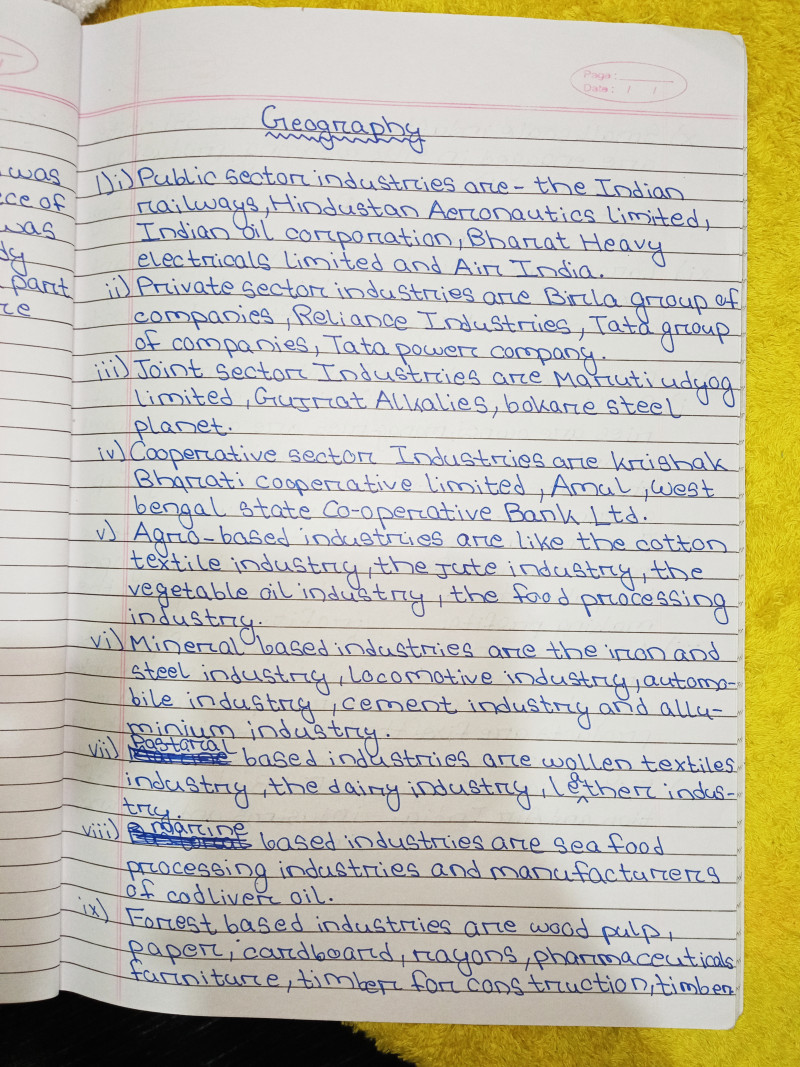 was
ce of
was
dy
part
re
Page :
Date : / /
Geography
1) i) Public sector industries are - the Indian
railways, Hindustan Aeronautics limited,
Indian oil corporation, Bharat Heavy
electricals limited and Air India.
ii) Private sector industries are Birla group of
companies, Reliance Industries, Tata group
of companies, Tata power company.
iii) Joint sector Industries are Maruti udyog
limited, Gujrat Alkalies, bokare steel
planet.
iv) Cooperative sector Industries are krishak
Bharati cooperative limited, Amul, West
bengal state Co-operative Bank Ltd.
v) Agro-based industries are like the cotton
textile industry, the jute industry, the
vegetable oil industry, the food processing
industry.
vi) Mineral based industries are the iron and
steel industry, locomotive industry, automo-
bile industry, cement industry and allu-
minium industry.
vii) Pastaral based industries are wollen textiles
industry, the dairy industry, leather indus-
try.
viii) marine based industries are sea food
processing industries and manufacturers
of codliver oil.
ix) Forest based industries are wood pulp,
paper, cardboard, rayons, pharmaceuticals
farniture, timber for construction, timber